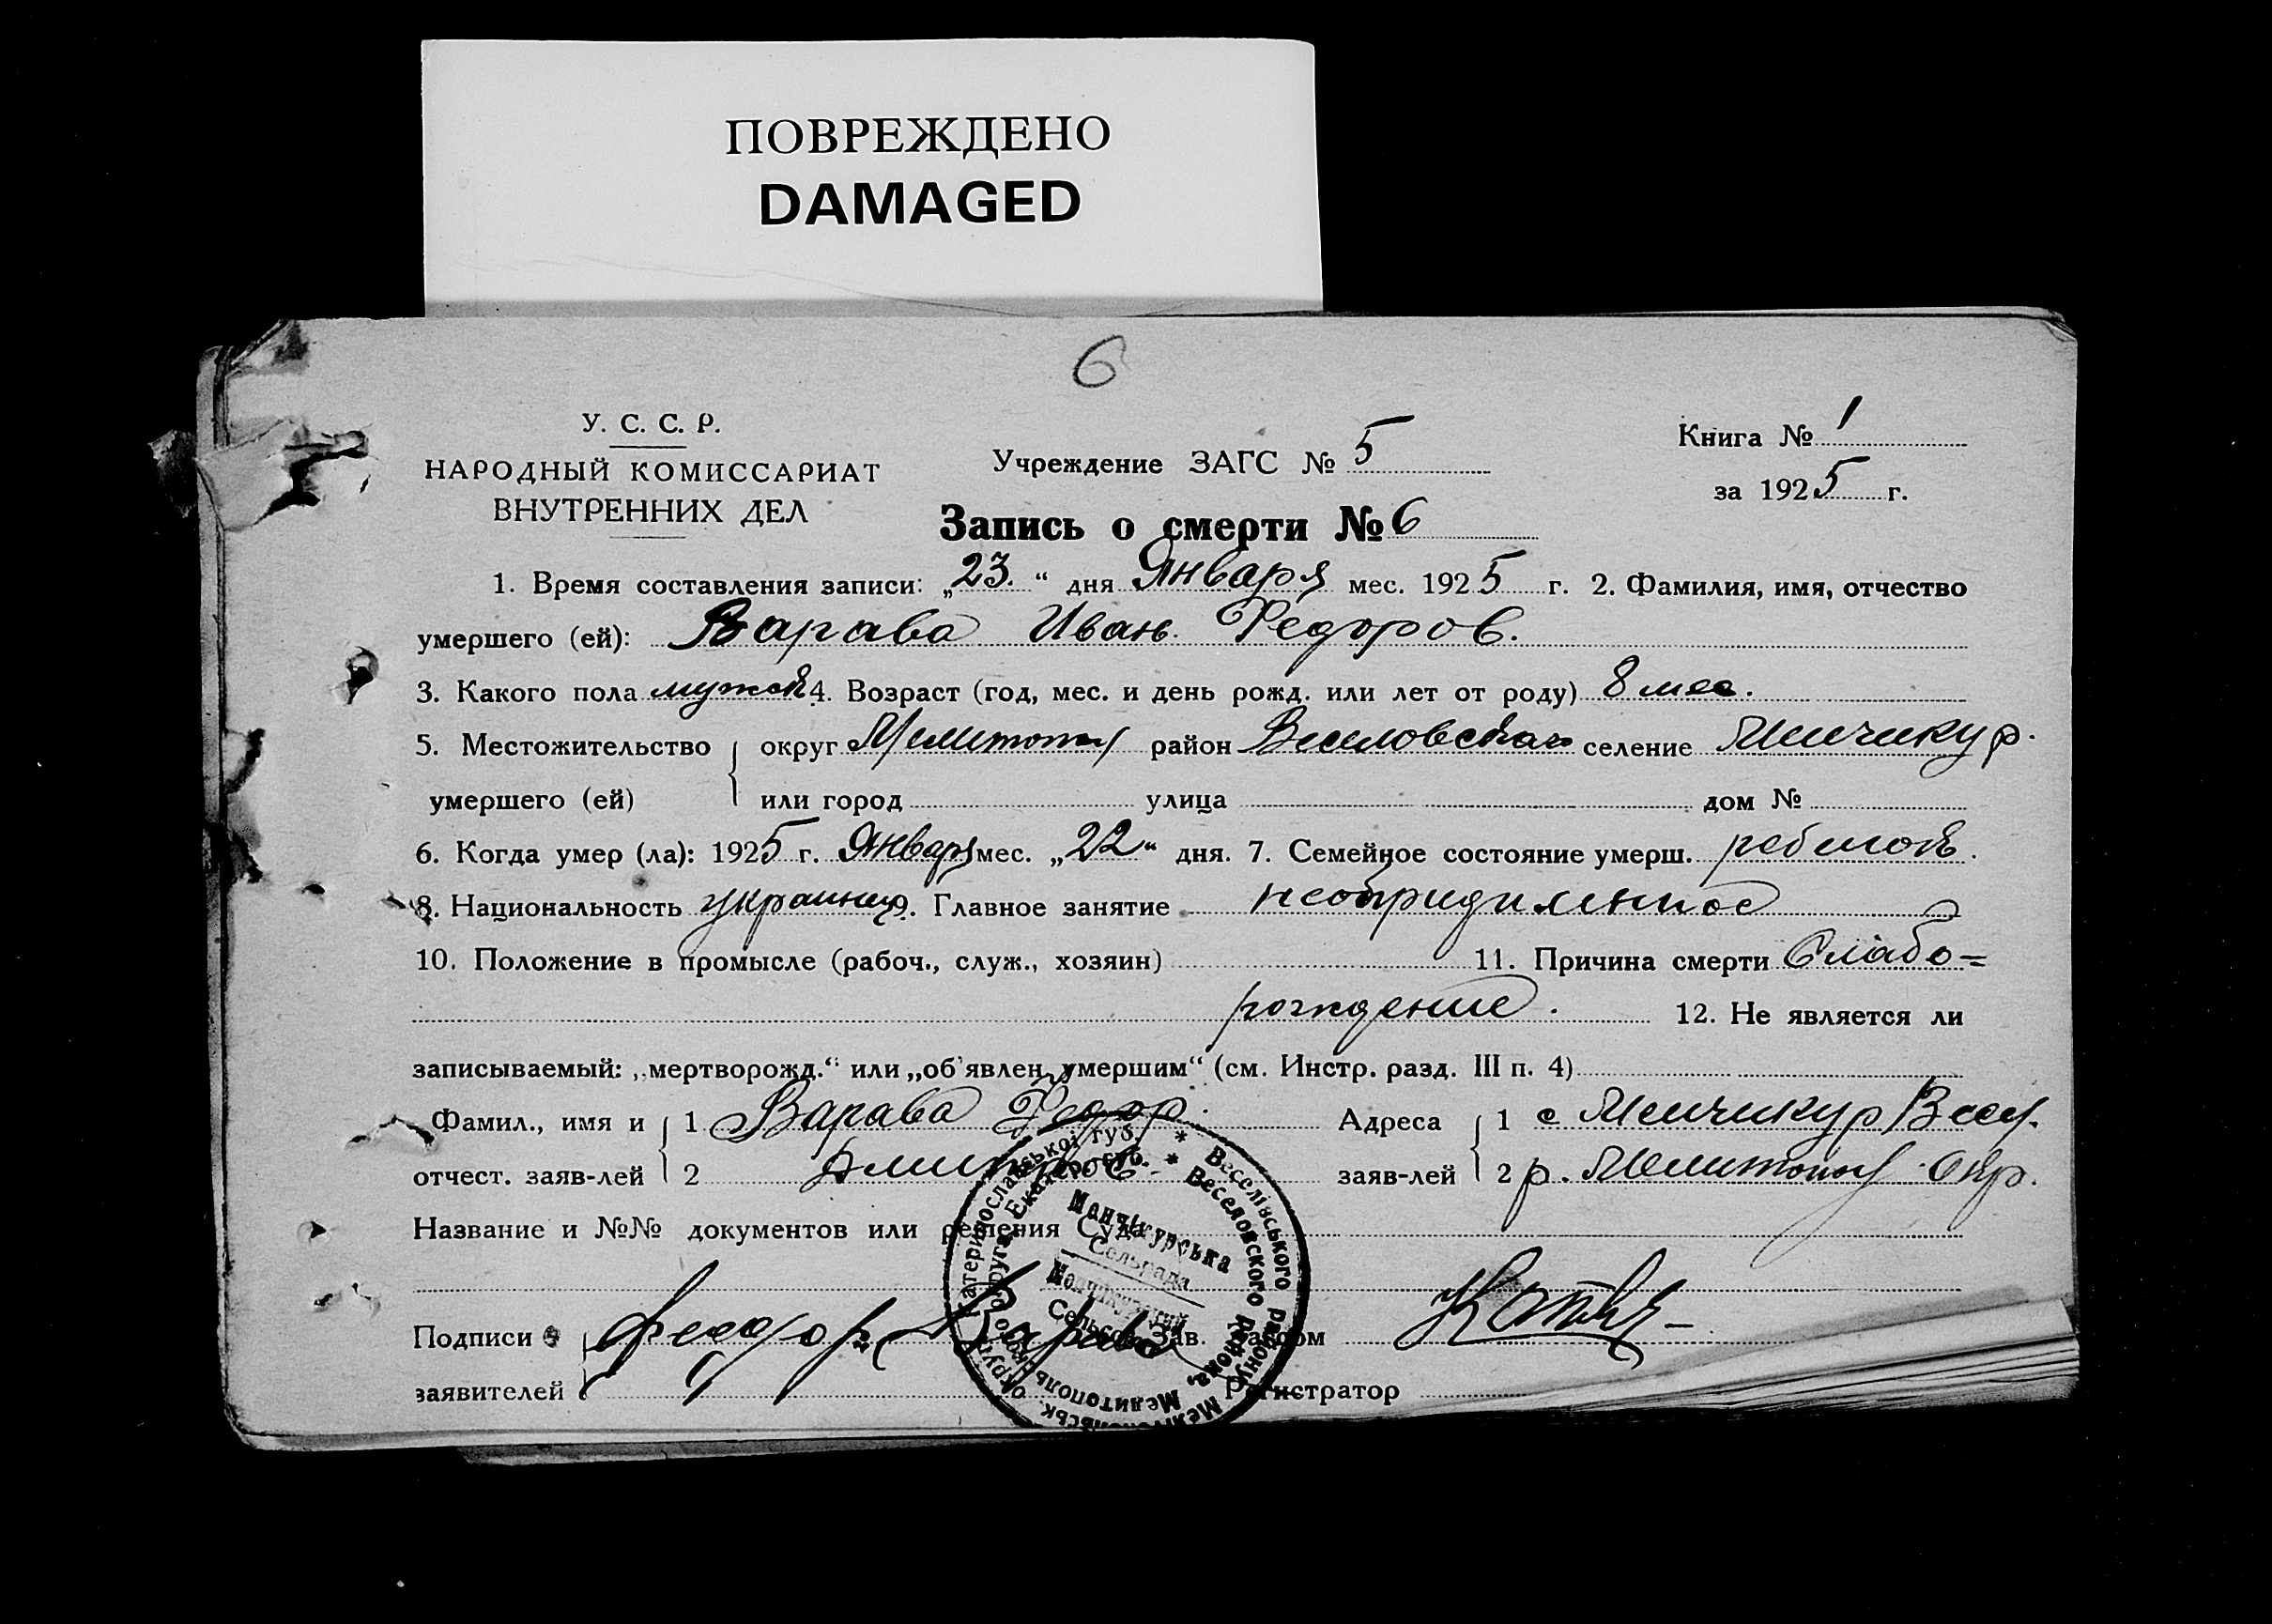 ПОВРЕЖДЕНО
DAMAGED
6
У. С. С. Р.
НАРОДНЫЙ КОМИССАРИАТ
ВНУТРЕННИХ ДЕЛ
Учреждение ЗАГС № 5
Книга № 1
за 1925 г.
Запись о смерти № 6
1. Время составления записи: „23.“ дня Января мес. 1925 г. 2. Фамилия, имя, отчество
умершего (ей): Варава Иван. Федоров.
3. Какого пола мужск 4. Возраст (год, мес. и день рожд. или лет от роду) 8 мес.
5. Местожительство округ Мелитопол район Веселовский селение Менчикур.
умершего (ей) или город улица дом №
6. Когда умер (ла): 1925 г. Января мес. „22“ дня. 7. Семейное состояние умерш. ребинок.
8. Национальность украинец 9. Главное занятие
10. Положение в промысле (рабоч., служ., хозяин) 11. Причина смерти Слабо=
рождение. 12. Не является ли
записываемый: „мертворожд.“ или „об'явлен умершим“ (см. Инстр. разд. III п. 4)
Фамил., имя и 1 Варава Федор. Адреса 1 с Менчикур Весел.
отчест. заяв-лей 2 Дмитров. заяв-лей 2 р. Мелитопол Окр.
Название и №№ документов или решения Суда
Подписи Феодор Варава Зав.
заявителей Регистратор
Катеринославської губ. * Веселівського району Мелітопольськ. округи
Екатеринослав. * Веселовского района, Мелитопольского округа
Манчікурська
Сельрада
Манчикурский
Сельсовет